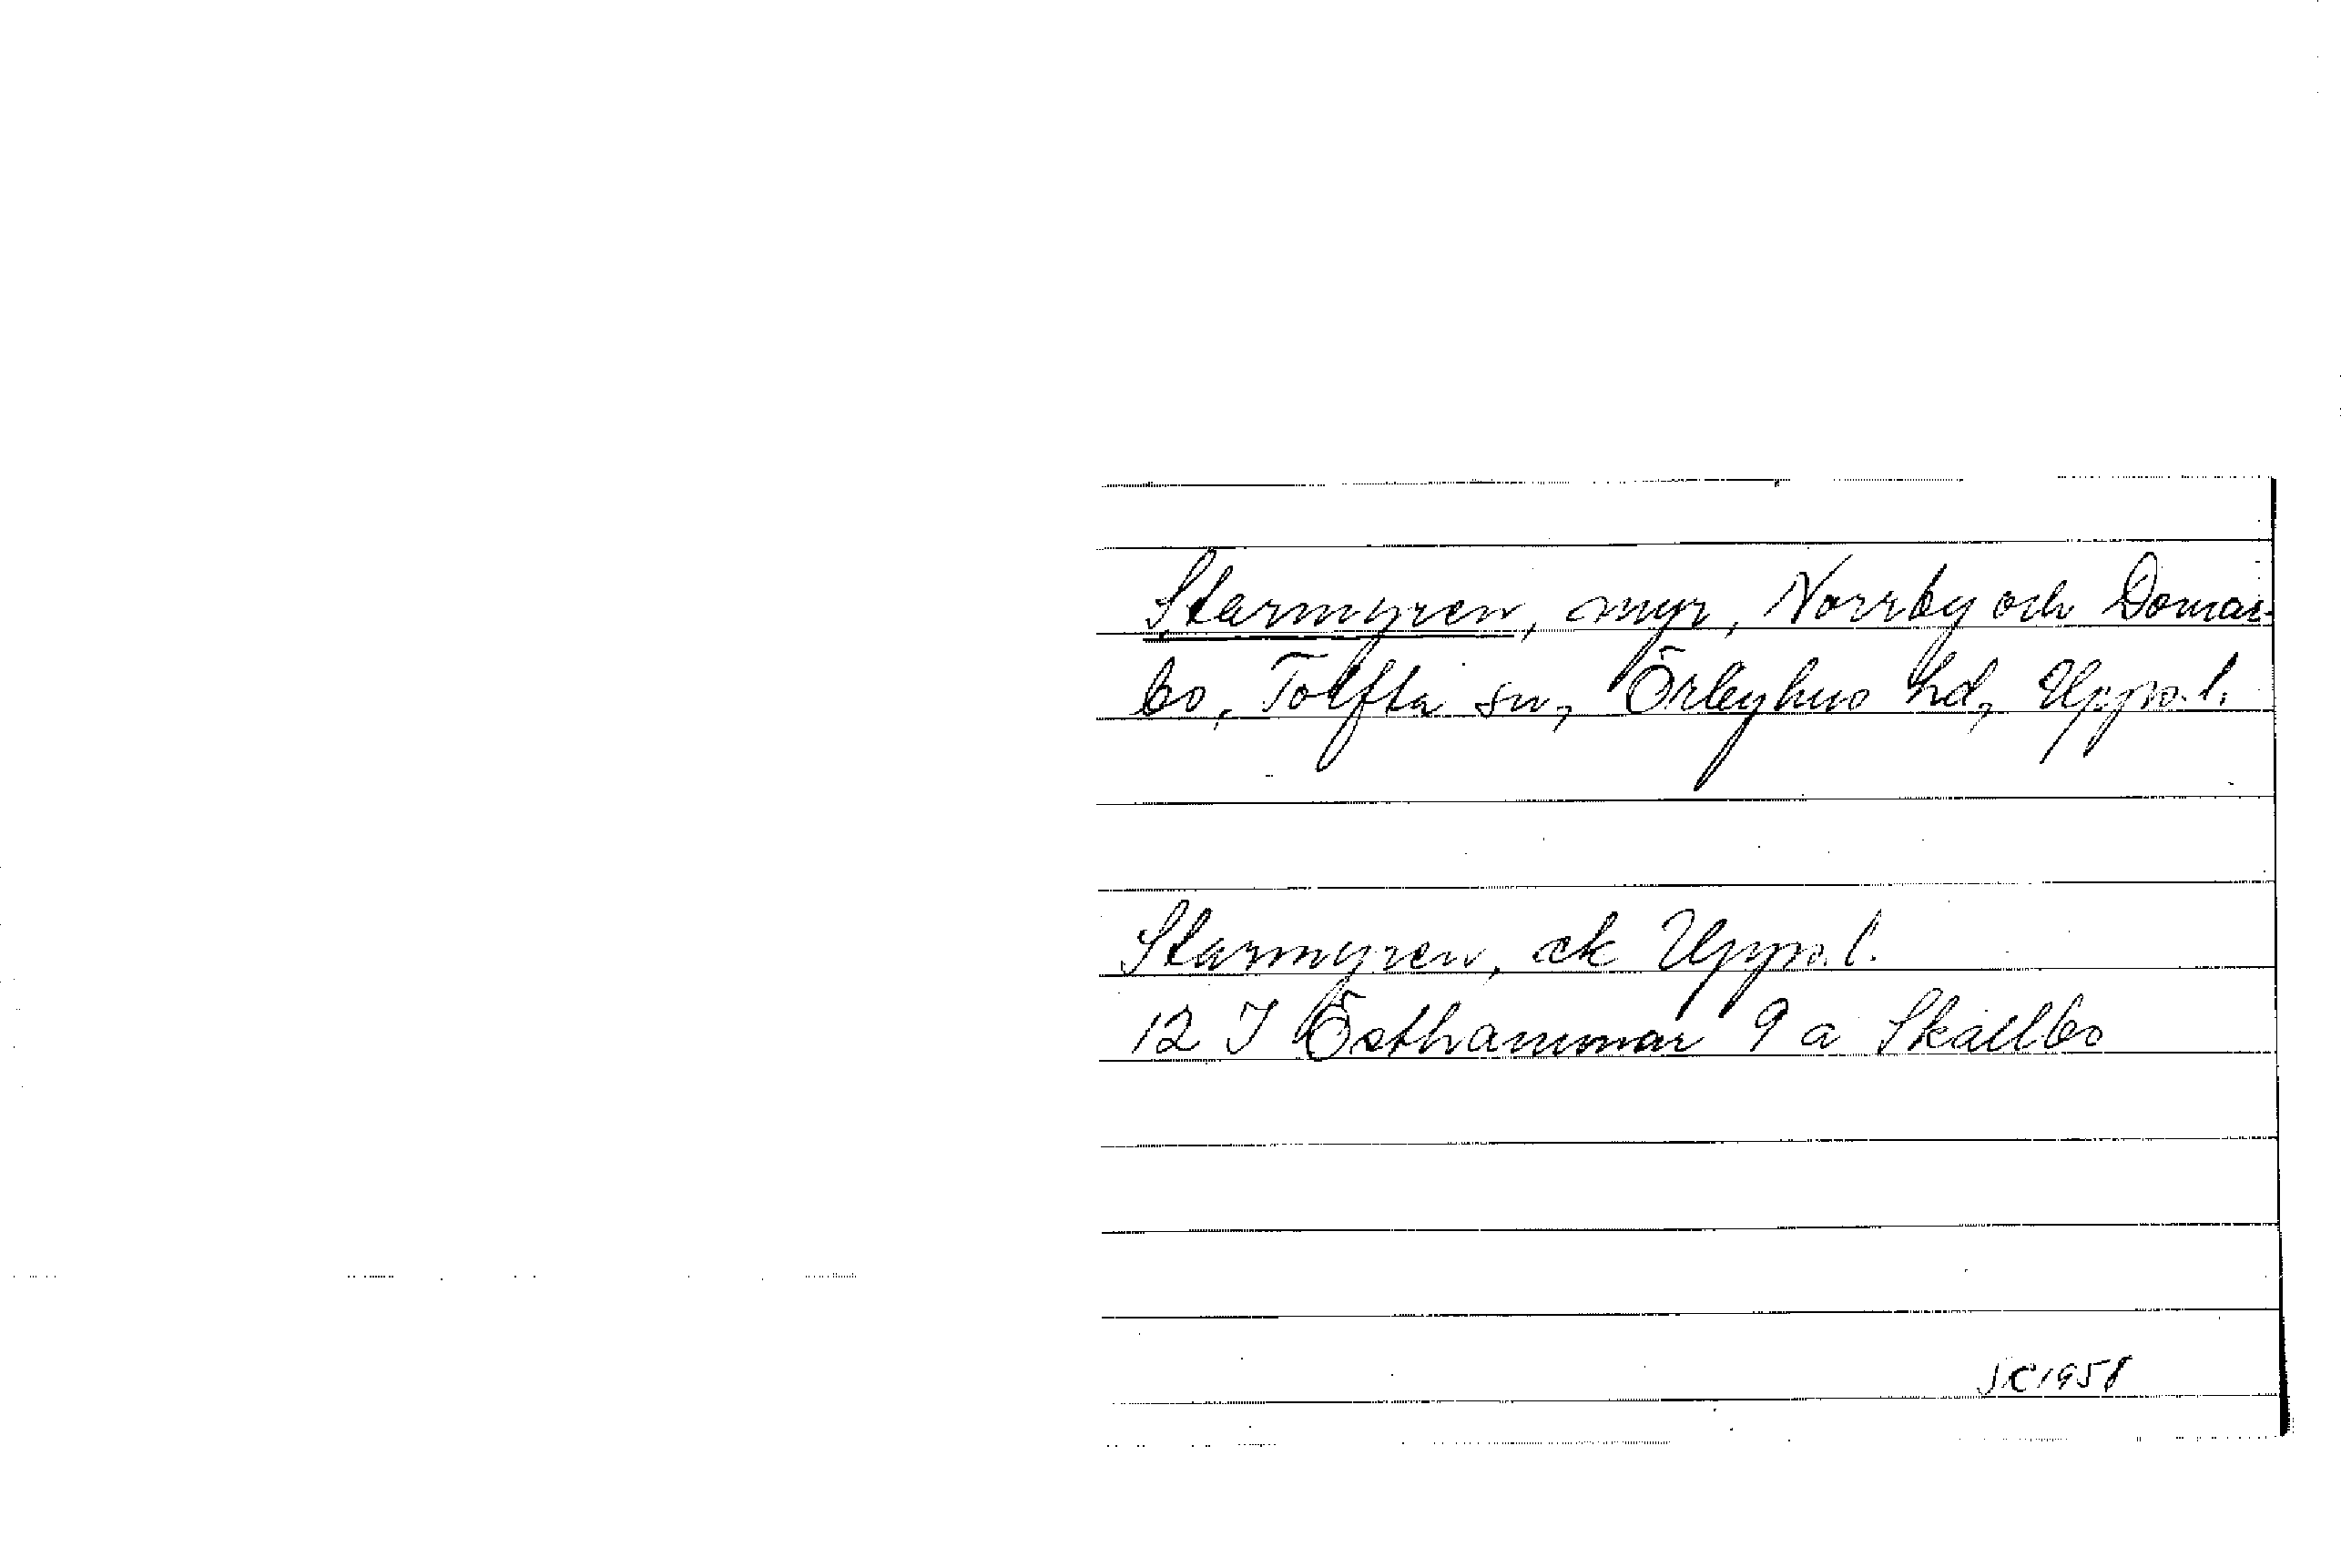 Starmyren, myr, Norrby och Domar-
bo, Tolfta sn, Örbyhus hd, Uppl.
Starmyren, ek Uppl.
12 I Östhammar 9 a Skällbo
SC 1958